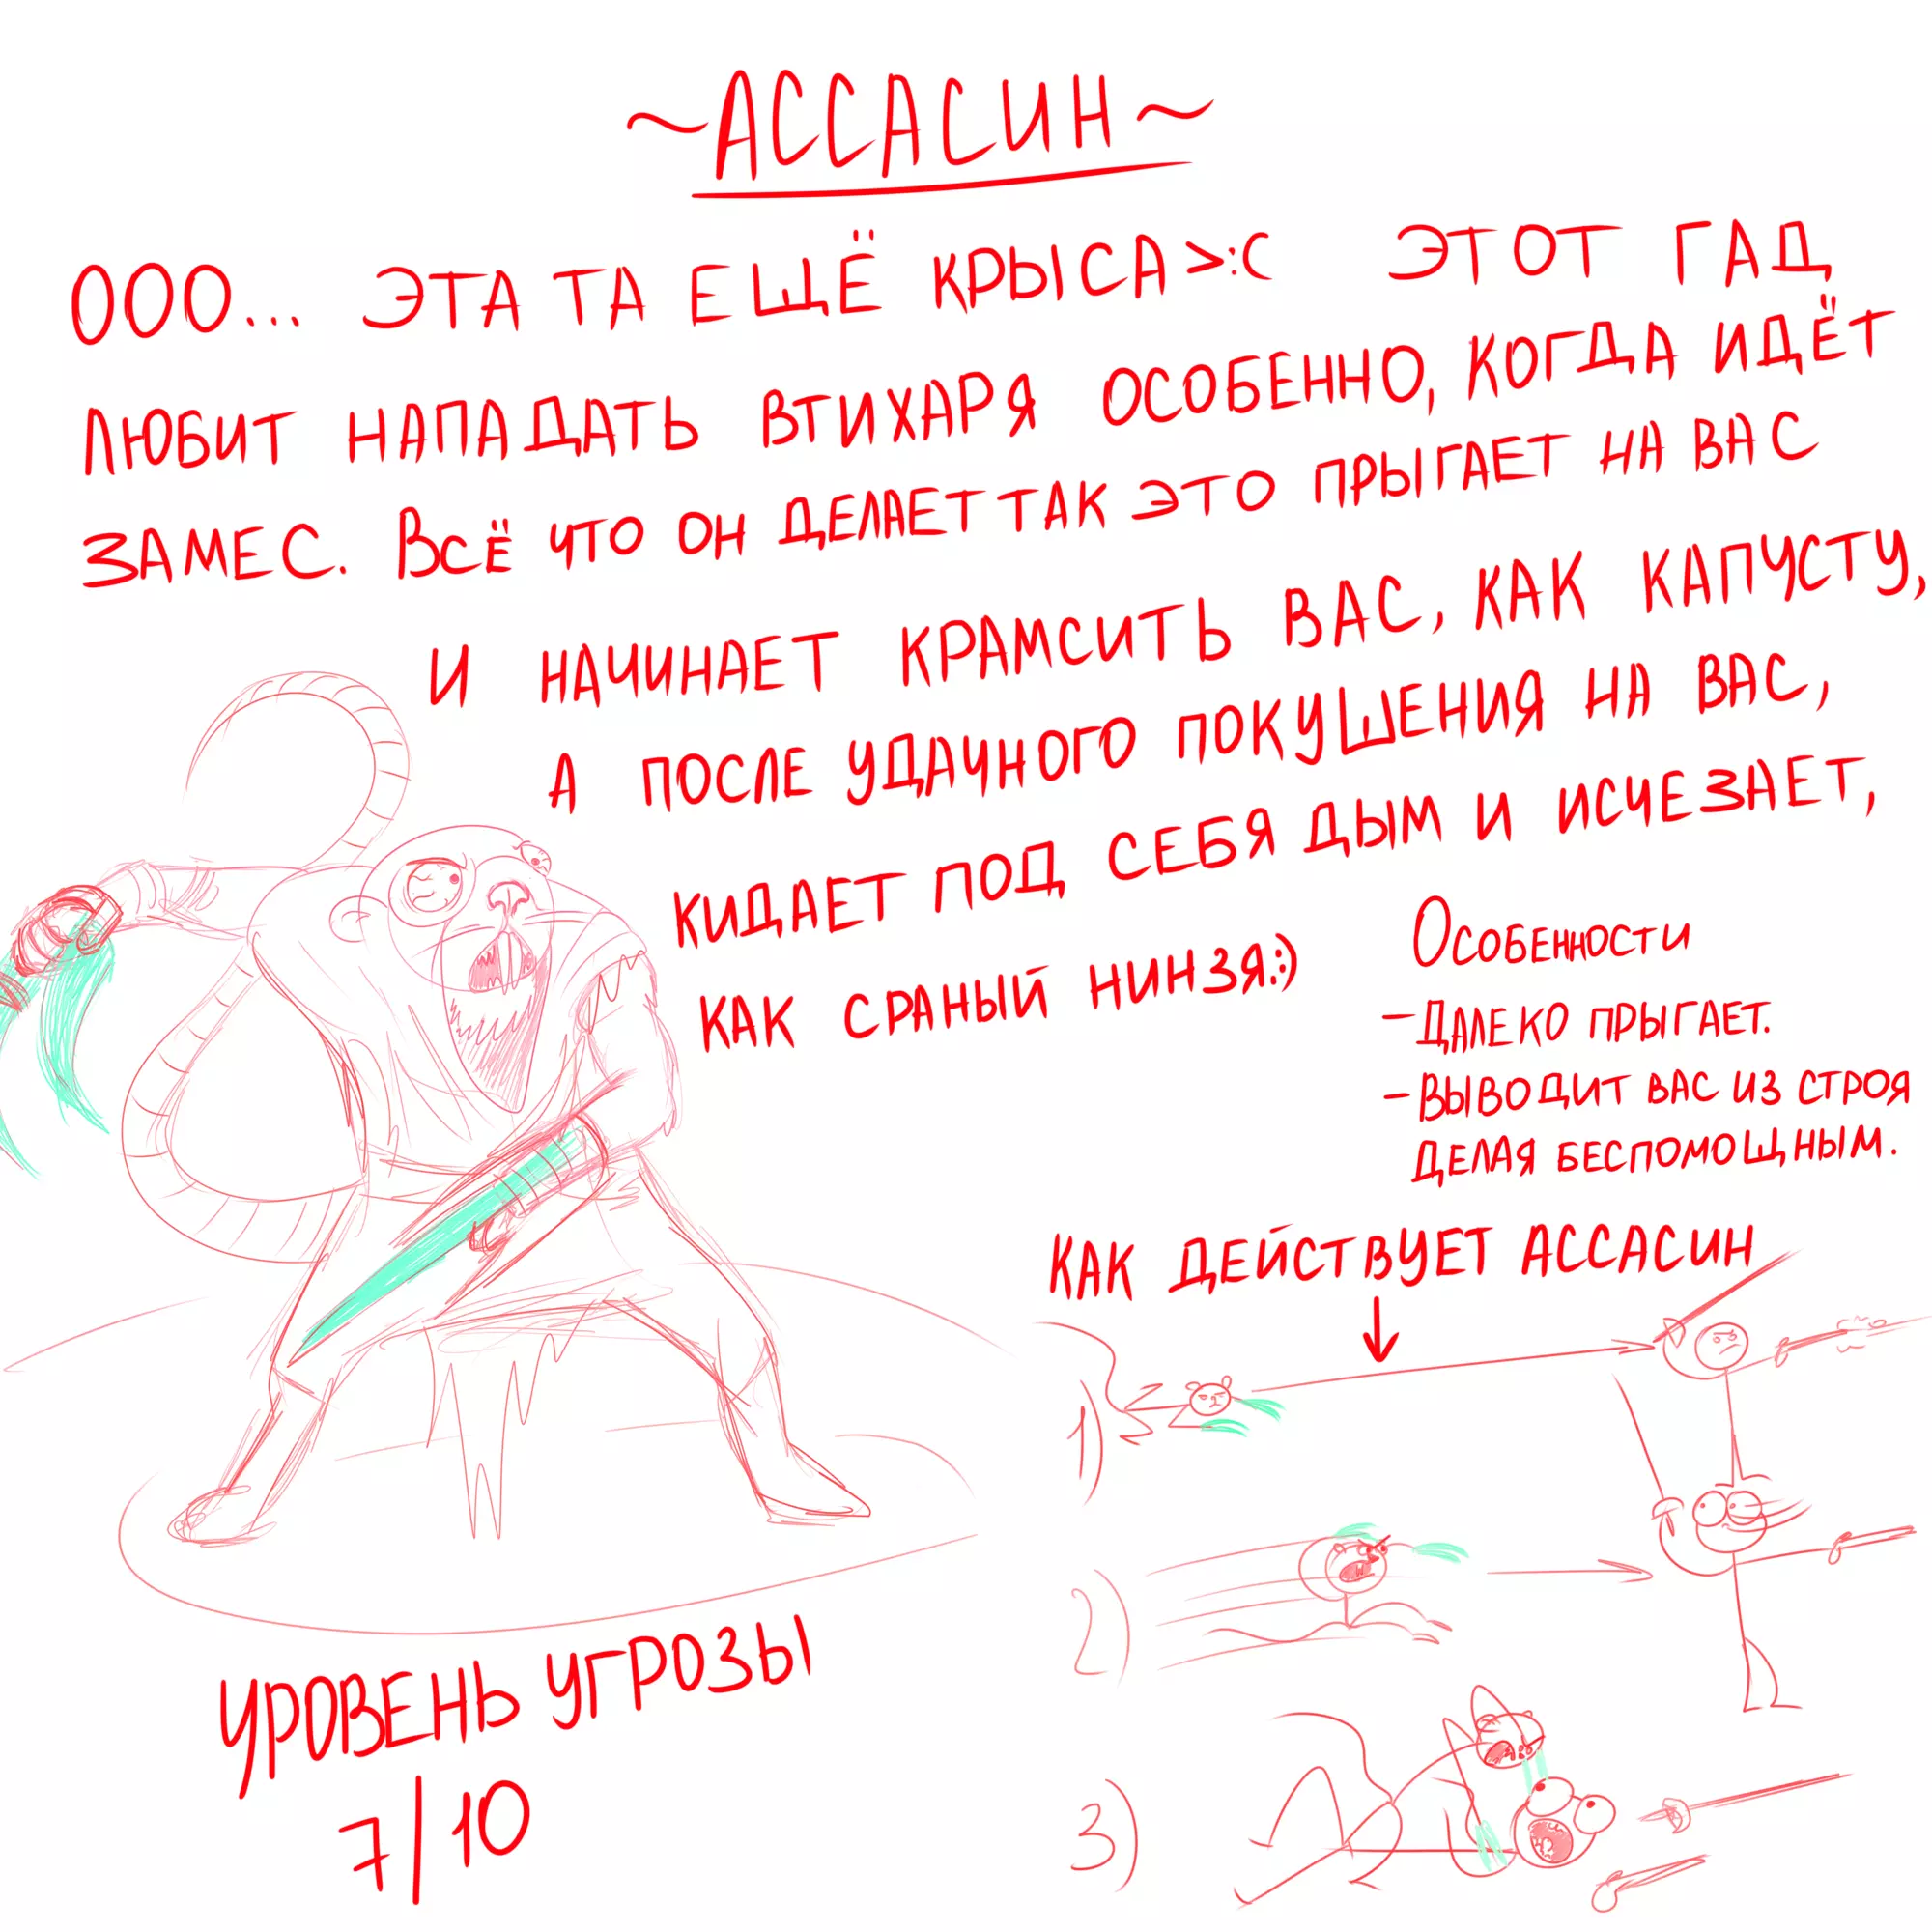 ~АССАСИН~
ООО... ЭТА ТА ЕЩЁ КРЫСА>:С ЭТОТ ГАД
ЛЮБИТ НАПАДАТЬ ВТИХАРЯ ОСОБЕННО, КОГДА ИДЁТ
ЗАМЕС. ВСЁ ЧТО ОН ДЕЛАЕТ ТАК ЭТО ПРЫГАЕТ НА ВАС
И НАЧИНАЕТ КРАМСИТЬ ВАС, КАК КАПУСТУ,
А ПОСЛЕ УДАЧНОГО ПОКУШЕНИЯ НА ВАС,
КИДАЕТ ПОД СЕБЯ ДЫМ И ИСЧЕЗАЕТ,
КАК СРАНЫЙ НИНЗЯ:)
ОСОБЕННОСТИ
-ДАЛЕКО ПРЫГАЕТ.
-ВЫВОДИТ ВАС ИЗ СТРОЯ
ДЕЛАЯ БЕСПОМОЩНЫМ.
КАК ДЕЙСТВУЕТ АССАСИН
1)
2)
3)
УРОВЕНЬ УГРОЗЫ
7/10